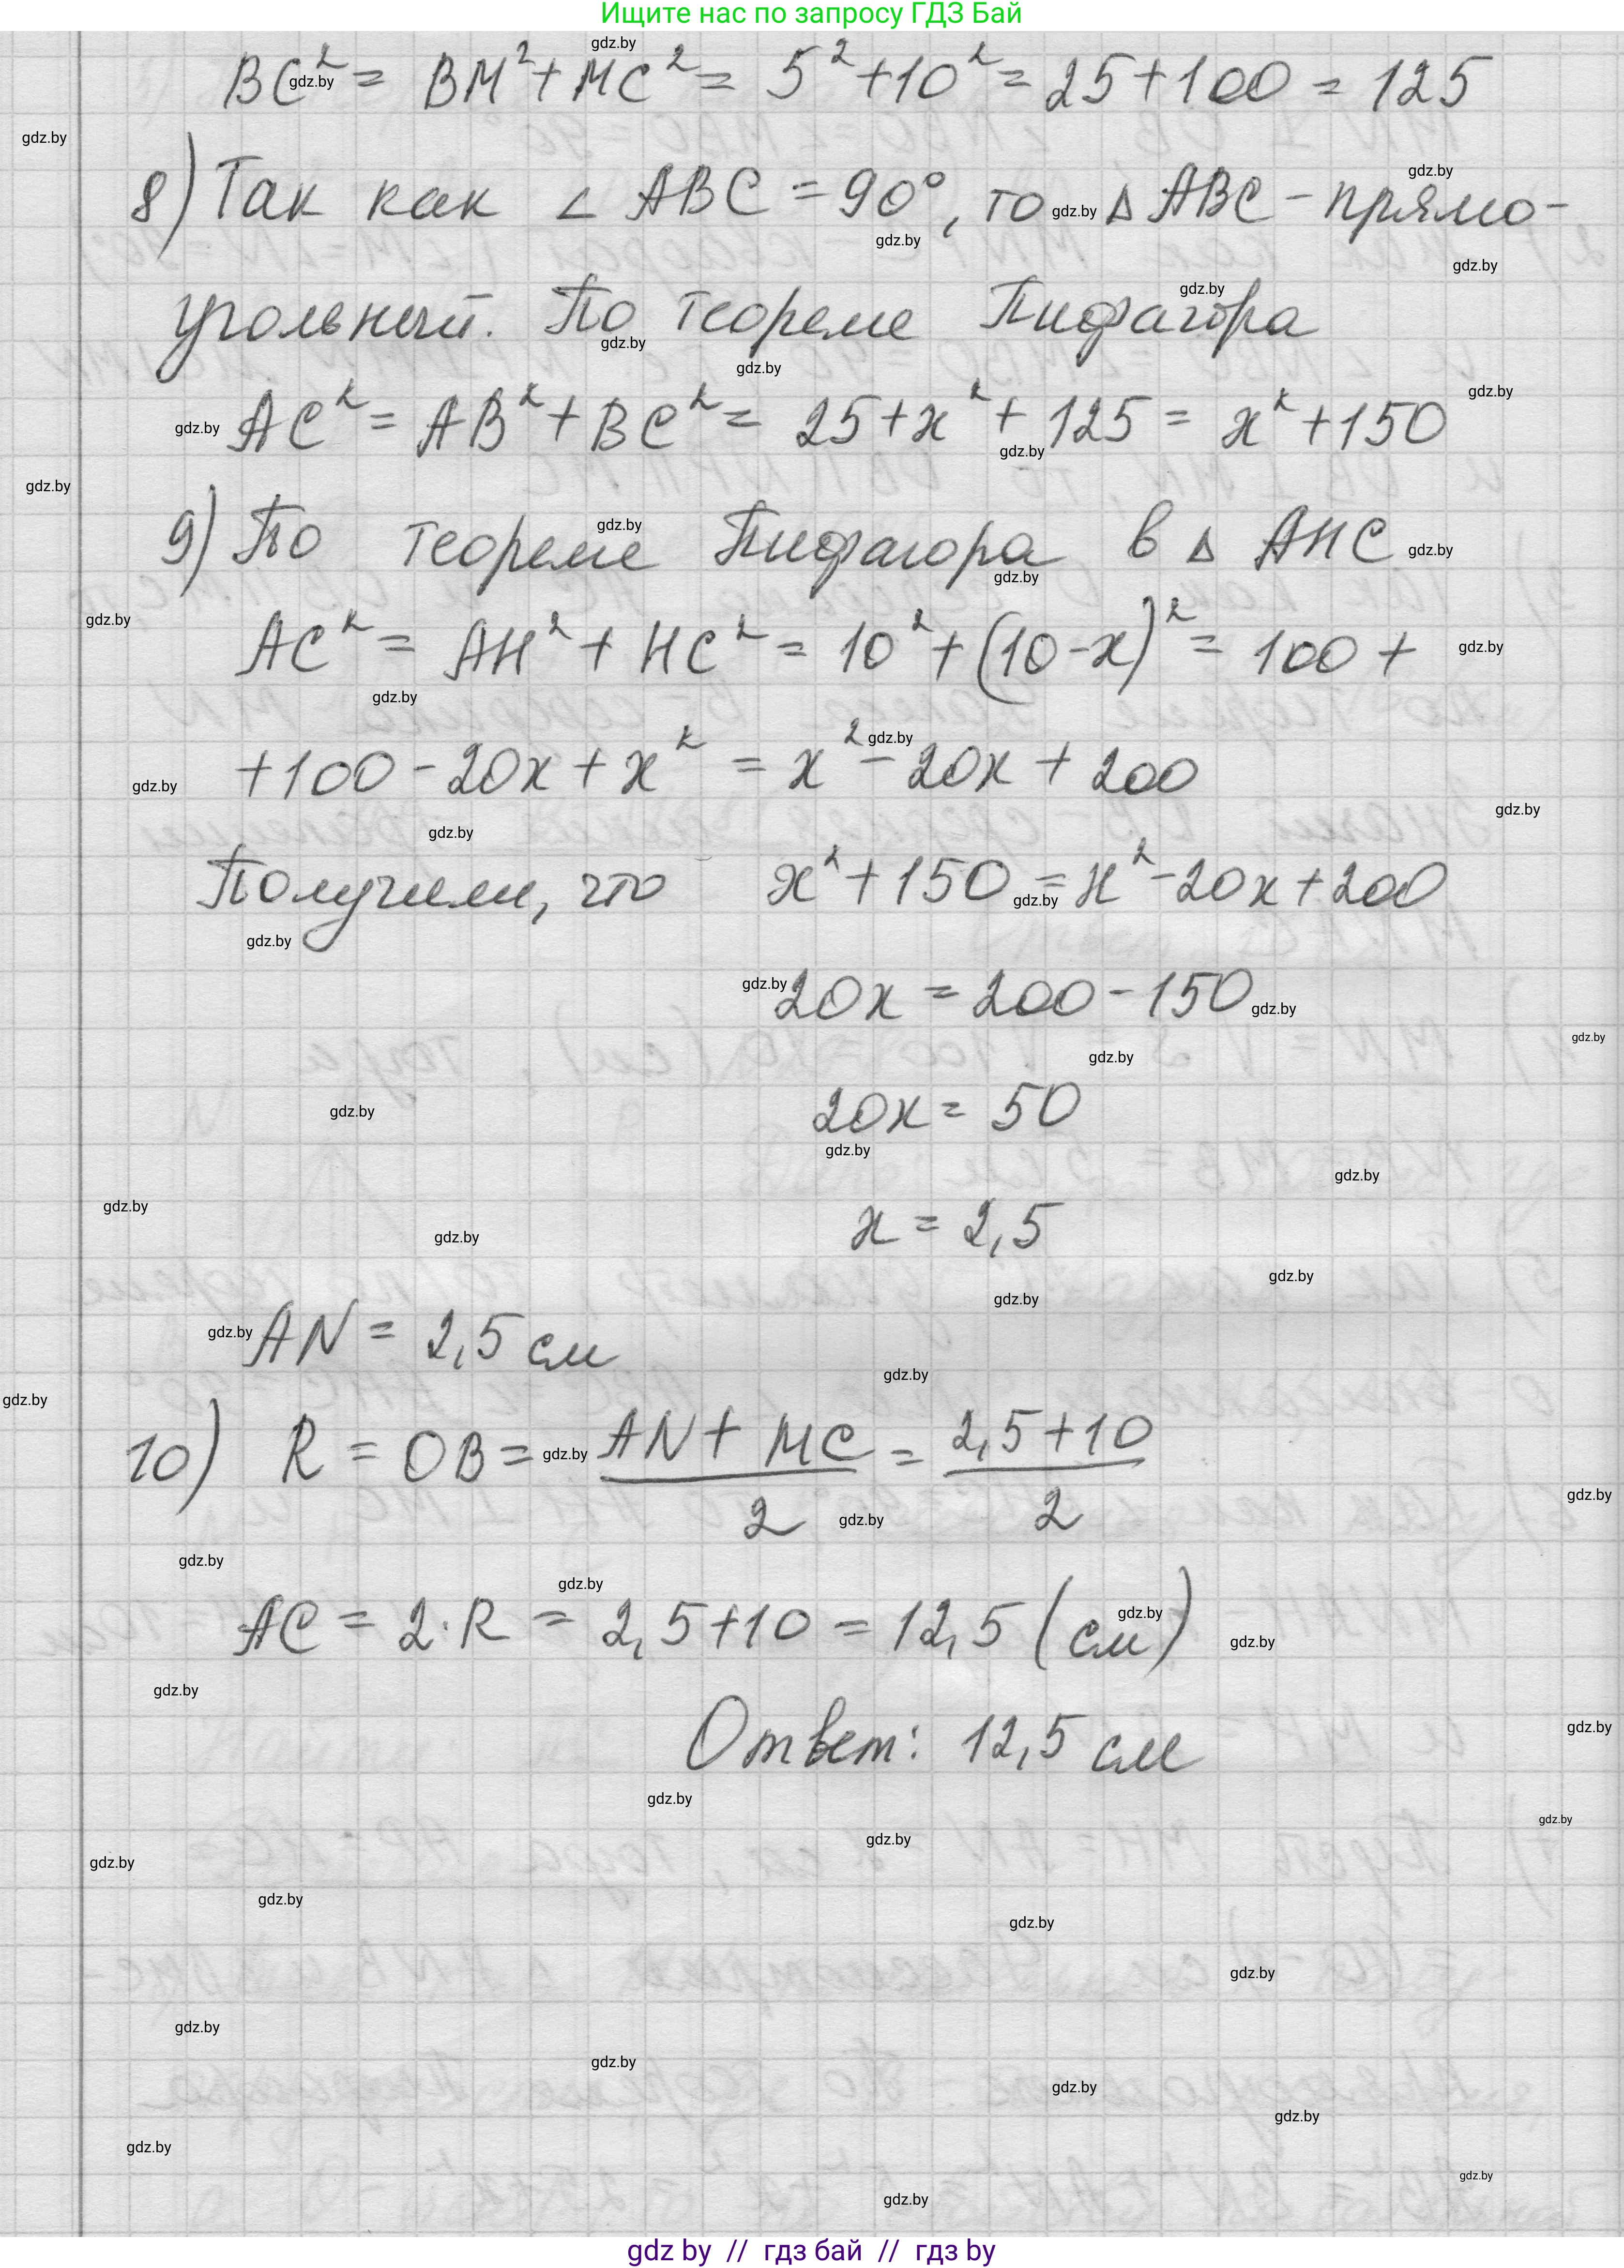 Ищите нас по запросу ГДЗ Бай
BC² = BM² + MC² = 5² + 10² = 25 + 100 = 125
8) Так как ∠ ABC = 90°, то Δ ABC - прямо-
угольный. По теореме Пифагора
AC² = AB² + BC² = 25 + x² + 125 = x² + 150
9) По теореме Пифагора в Δ AHC
AC² = AH² + HC² = 10² + (10 - x)² = 100 +
+ 100 - 20x + x² = x² - 20x + 200
Получим, что x² + 150 = x² - 20x + 200
20x = 200 - 150
20x = 50
x = 2,5
AN = 2,5 см
10) R = OB = (AN + MC)/2 = (2,5 + 10)/2
AC = 2 · R = 2,5 + 10 = 12,5 (см)
Ответ: 12,5 см
gdz by // гдз бай // гдз by